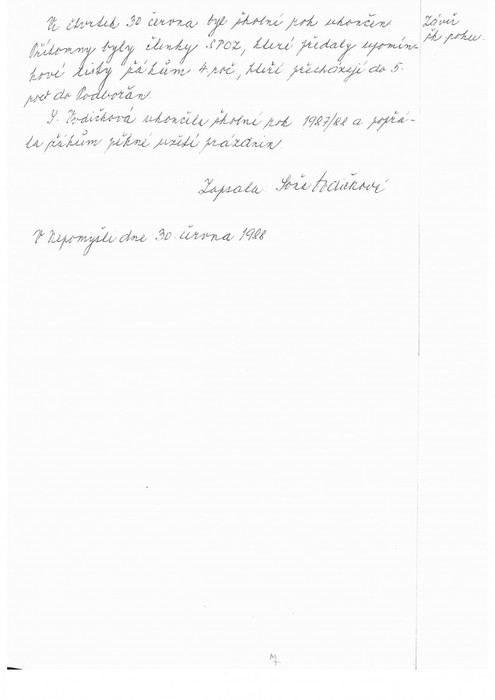 Ve čtvrtek 30 června byl školní rok ukončen
Přítomny byly členky SPOZ, které předaly upomín-
kové listy žákům 4. roč, kteří přecházejí do 5.
roč do Podbořan.
S. Vodičková ukončila školní rok 1987/88 a popřá-
la žákům pěkné užití prázdnin
Zapsala Soše Vodičková
V Nepomyšli dne 30. června 1988
Závěr
šk. roku.